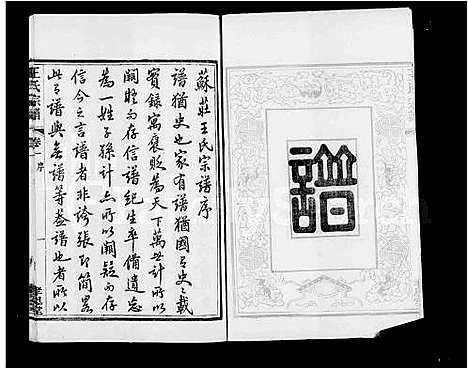 譜
蘇莊王氏宗譜序
譜猶史也家有譜猶國之有史之載
實錄寓褒貶為天下萬世計所以
闕疑而存信譜紀生卒備遺忘
為一姓子孫計亦所以闕疑而存
信今之言譜者非誇張即簡畧
此有譜與無譜等盖譜也者所以
王氏宗譜
卷一 序